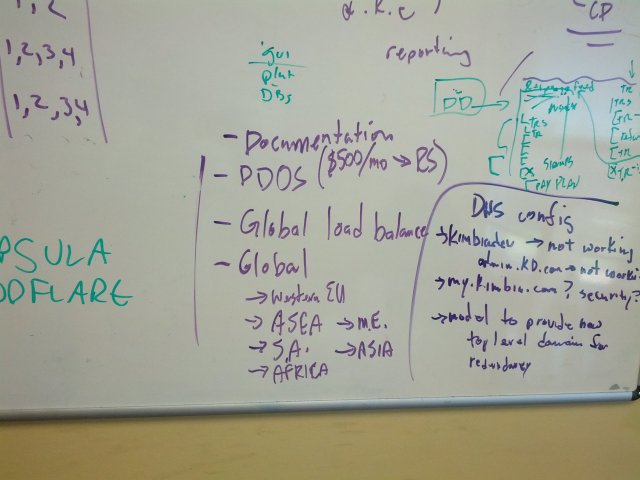 1, 2
1,2,3,4
1,2,3,4
reporting
CP
gui
DBs
DD
- Documentation
- PDOS ($500/mo → RS)
- Global load balance
- Global
→ Western EU
→ ASEA → M.E.
→ S.A. → ASIA
→ AFRICA
PSULA
ODFLARE
TRS
TR
SIGNUPS
PAY PLAN
DNS config
→ Kimbiadev → not working
admin.KD.com → not worki
→ my.kimbia.com? security?
→ model to provide new
top level domain for
redundancy